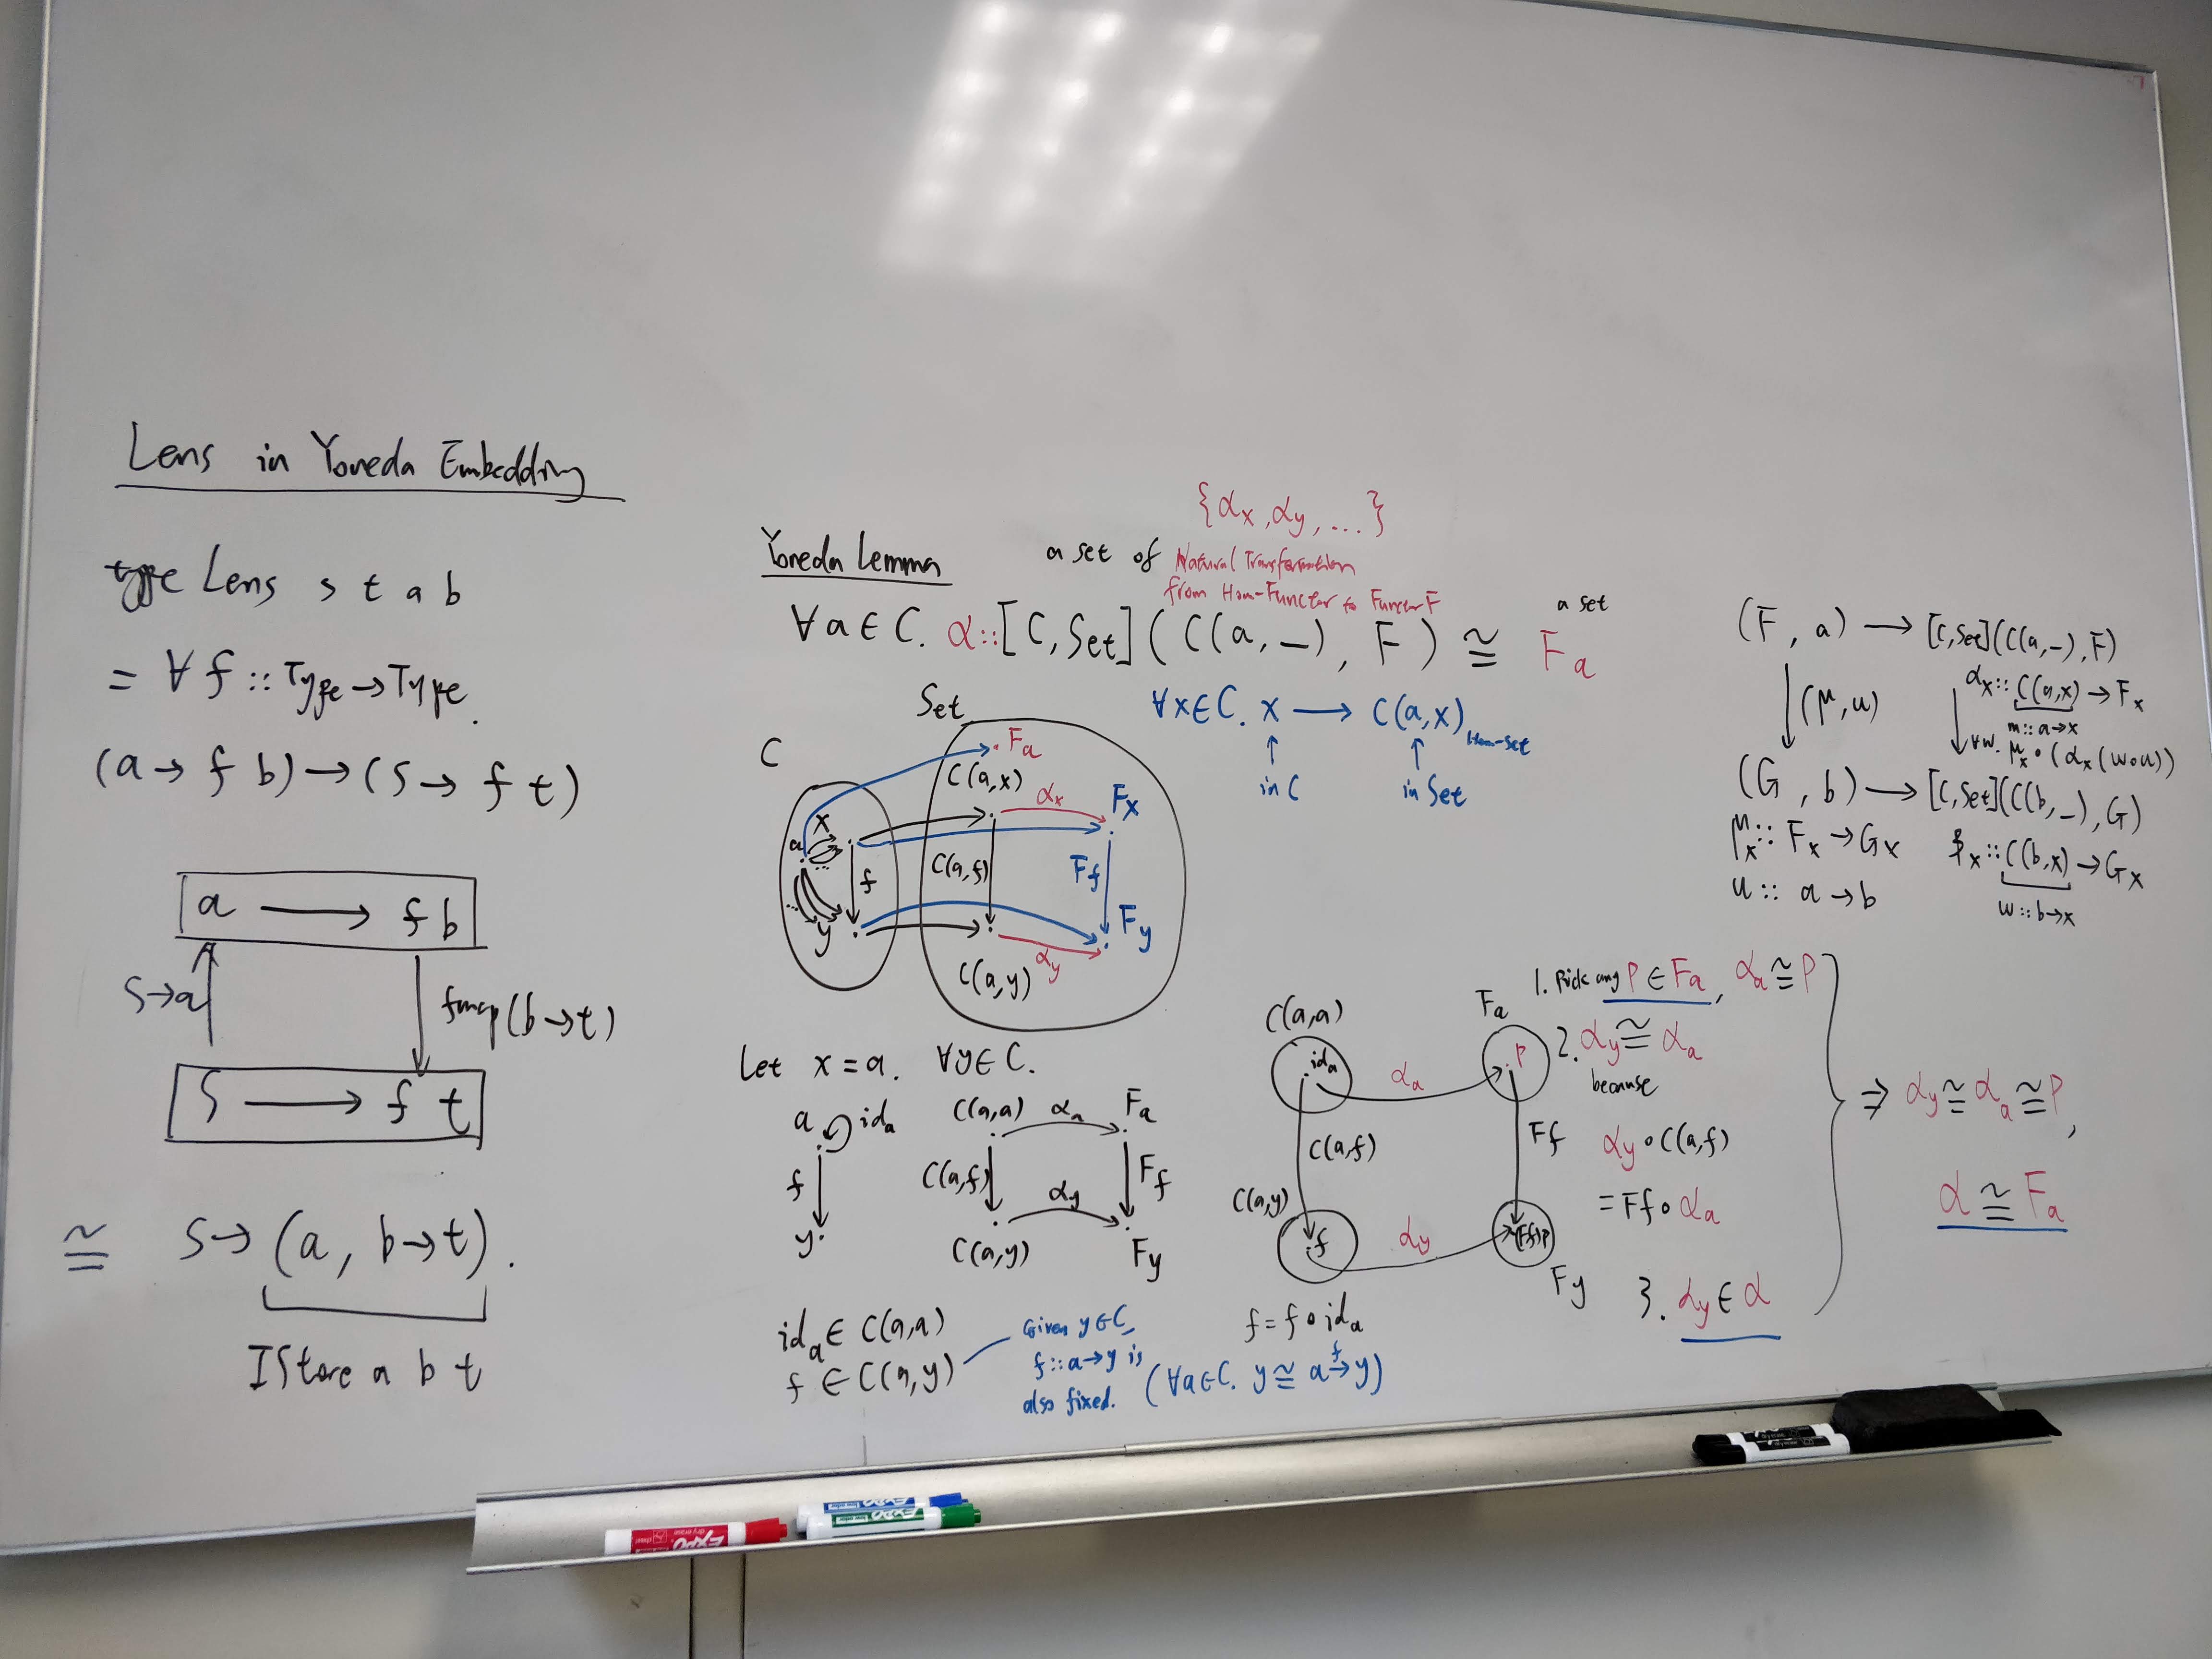 Lens in Yoneda Embedding
type Lens s t a b
= ∀ f :: Type → Type.
(a → f b) → (s → f t)
a ⟶ f b
s→a
fmap(b→t)
s ⟶ f t
≅ s → (a, b→t).
IStore a b t
{αx, αy, ...}
Yoneda Lemma
a set of Natural Transformation
from Hom-Functor to Functor F
a set
∀a∈C. α::[C,Set](C(a,—), F) ≅ Fa
Set
∀x∈C. x ⟶ C(a,x) Hom-set
↑ in C
↑ in Set
C
Fa
C(a,x)
αx
Fx
x
a
f
C(a,f)
Ff
y
Fy
αy
C(a,y)
Let x = a. ∀y∈C.
a ida
C(a,a) αa Fa
f
C(a,f)
Ff
αy
y
C(a,y)
Fy
ida ∈ C(a,a)
f ∈ C(a,y)
Given y∈C,
f::a→y is
also fixed.
(∀a∈C. y ≅ a f→ y)
C(a,a)
Fa
ida
αa
P
C(a,f)
Ff
C(a,y)
f
αy
(Ff)P
Fy
f = f∘ida
1. Pick any P ∈ Fa, αa ≅ P
2. αy ≅ αa
because
αy ∘ C(a,f)
= Ff ∘ αa
3. αy ∈ α
⇒ αy ≅ αa ≅ P,
α ≅ Fa
(F, a) ⟶ [C,Set](C(a,—),F)
(μ,u)
αx :: C(a,x) → Fx
m :: a→x
∀w. μx ∘ (αx(w∘u))
(G, b) ⟶ [C,Set](C(b,—),G)
μx :: Fx → Gx
u :: a → b
x :: C(b,x) → Gx
w :: b→x
EXPO
EXPO
EXPO